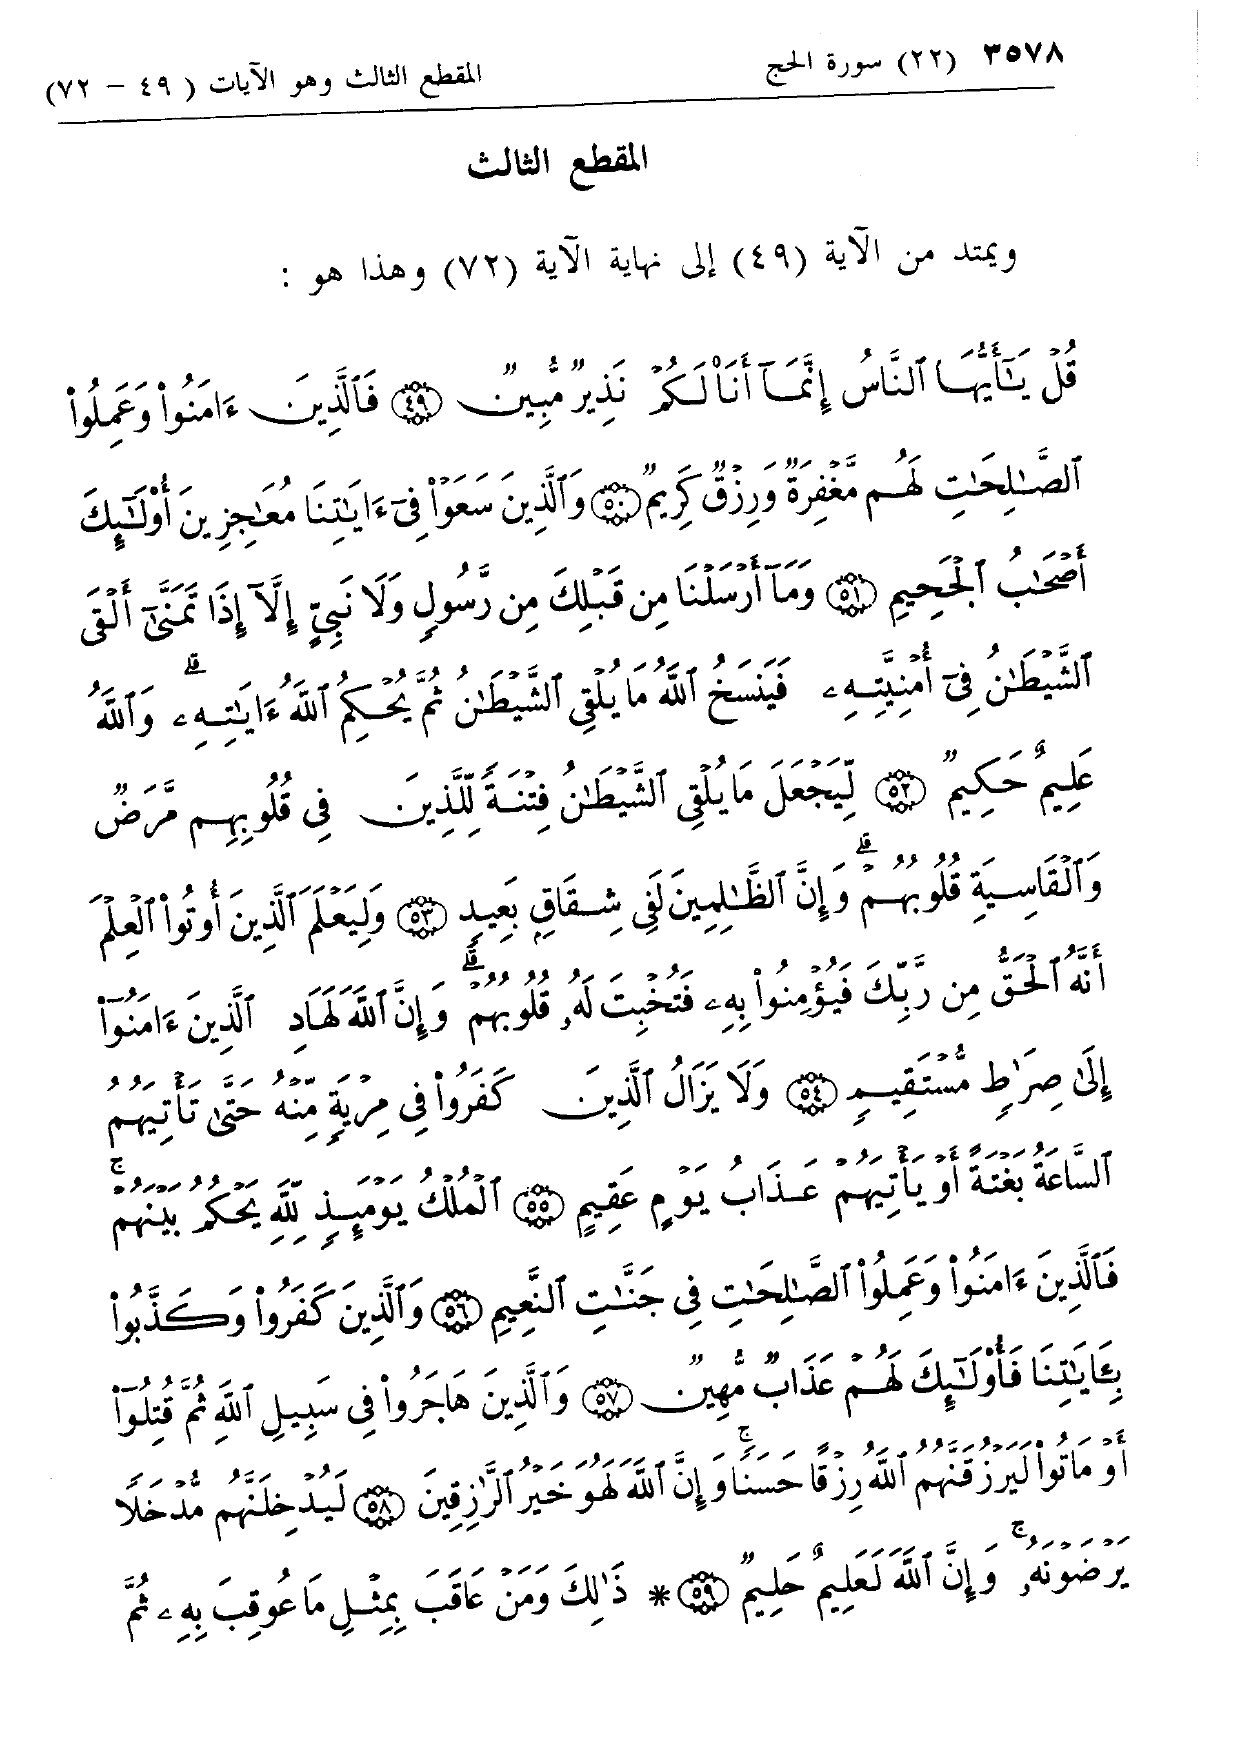 ٣٥٧٨ (٢٢) سورة الحج المقطع الثالث وهو الآيات ( ٤٩ – ٧٢)
المقطع الثالث
ويمتد من الآية (٤٩) إلى نهاية الآية (٧٢) وهذا هو :
قُلْ يَـٰٓأَيُّهَا ٱلنَّاسُ إِنَّمَآ أَنَا۠ لَكُمْ نَذِيرٌ مُّبِينٌ ﴿٤٩﴾ فَٱلَّذِينَ ءَامَنُوا۟ وَعَمِلُوا۟
ٱلصَّـٰلِحَـٰتِ لَهُم مَّغْفِرَةٌ وَرِزْقٌ كَرِيمٌ ﴿٥٠﴾ وَٱلَّذِينَ سَعَوْا۟ فِىٓ ءَايَـٰتِنَا مُعَـٰجِزِينَ أُو۟لَـٰٓئِكَ
أَصْحَـٰبُ ٱلْجَحِيمِ ﴿٥١﴾ وَمَآ أَرْسَلْنَا مِن قَبْلِكَ مِن رَّسُولٍ وَلَا نَبِىٍّ إِلَّآ إِذَا تَمَنَّىٰٓ أَلْقَى
ٱلشَّيْطَـٰنُ فِىٓ أُمْنِيَّتِهِۦ فَيَنسَخُ ٱللَّهُ مَا يُلْقِى ٱلشَّيْطَـٰنُ ثُمَّ يُحْكِمُ ٱللَّهُ ءَايَـٰتِهِۦ ۗ وَٱللَّهُ
عَلِيمٌ حَكِيمٌ ﴿٥٢﴾ لِّيَجْعَلَ مَا يُلْقِى ٱلشَّيْطَـٰنُ فِتْنَةً لِّلَّذِينَ فِى قُلُوبِهِم مَّرَضٌ
وَٱلْقَاسِيَةِ قُلُوبُهُمْ ۗ وَإِنَّ ٱلظَّـٰلِمِينَ لَفِى شِقَاقٍۭ بَعِيدٍ ﴿٥٣﴾ وَلِيَعْلَمَ ٱلَّذِينَ أُوتُوا۟ ٱلْعِلْمَ
أَنَّهُ ٱلْحَقُّ مِن رَّبِّكَ فَيُؤْمِنُوا۟ بِهِۦ فَتُخْبِتَ لَهُۥ قُلُوبُهُمْ ۗ وَإِنَّ ٱللَّهَ لَهَادِ ٱلَّذِينَ ءَامَنُوٓا۟
إِلَىٰ صِرَٰطٍ مُّسْتَقِيمٍ ﴿٥٤﴾ وَلَا يَزَالُ ٱلَّذِينَ كَفَرُوا۟ فِى مِرْيَةٍ مِّنْهُ حَتَّىٰ تَأْتِيَهُمُ
ٱلسَّاعَةُ بَغْتَةً أَوْ يَأْتِيَهُمْ عَذَابُ يَوْمٍ عَقِيمٍ ﴿٥٥﴾ ٱلْمُلْكُ يَوْمَئِذٍ لِّلَّهِ يَحْكُمُ بَيْنَهُمْ ۚ
فَٱلَّذِينَ ءَامَنُوا۟ وَعَمِلُوا۟ ٱلصَّـٰلِحَـٰتِ فِى جَنَّـٰتِ ٱلنَّعِيمِ ﴿٥٦﴾ وَٱلَّذِينَ كَفَرُوا۟ وَكَذَّبُوا۟
بِـَٔايَـٰتِنَا فَأُو۟لَـٰٓئِكَ لَهُمْ عَذَابٌ مُّهِينٌ ﴿٥٧﴾ وَٱلَّذِينَ هَاجَرُوا۟ فِى سَبِيلِ ٱللَّهِ ثُمَّ قُتِلُوٓا۟
أَوْ مَاتُوا۟ لَيَرْزُقَنَّهُمُ ٱللَّهُ رِزْقًا حَسَنًا ۚ وَإِنَّ ٱللَّهَ لَهُوَ خَيْرُ ٱلرَّٰزِقِينَ ﴿٥٨﴾ لَيُدْخِلَنَّهُم مُّدْخَلًا
يَرْضَوْنَهُۥ ۗ وَإِنَّ ٱللَّهَ لَعَلِيمٌ حَلِيمٌ ﴿٥٩﴾ * ذَٰلِكَ وَمَنْ عَاقَبَ بِمِثْلِ مَا عُوقِبَ بِهِۦ ثُمَّ